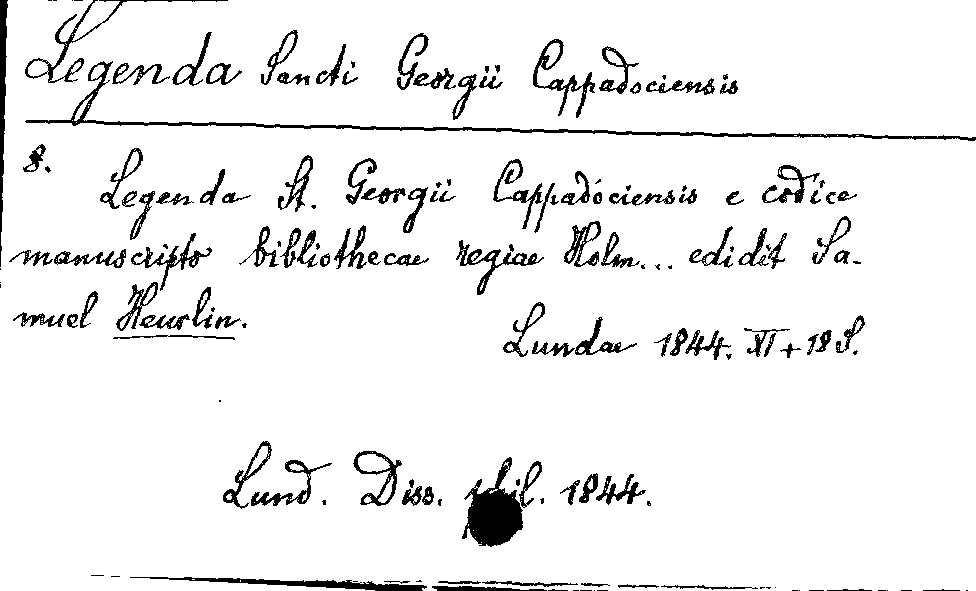 Legenda Sancti Georgii Cappadociensis
8. Legenda St. Georgii Cappadociensis e codice
manuscripto bibliothecae regiae Holm... edidit Sa-
muel Heurlin.
Lundae 1844. XI + 18 S.
Lund. Diss. phil. 1844.